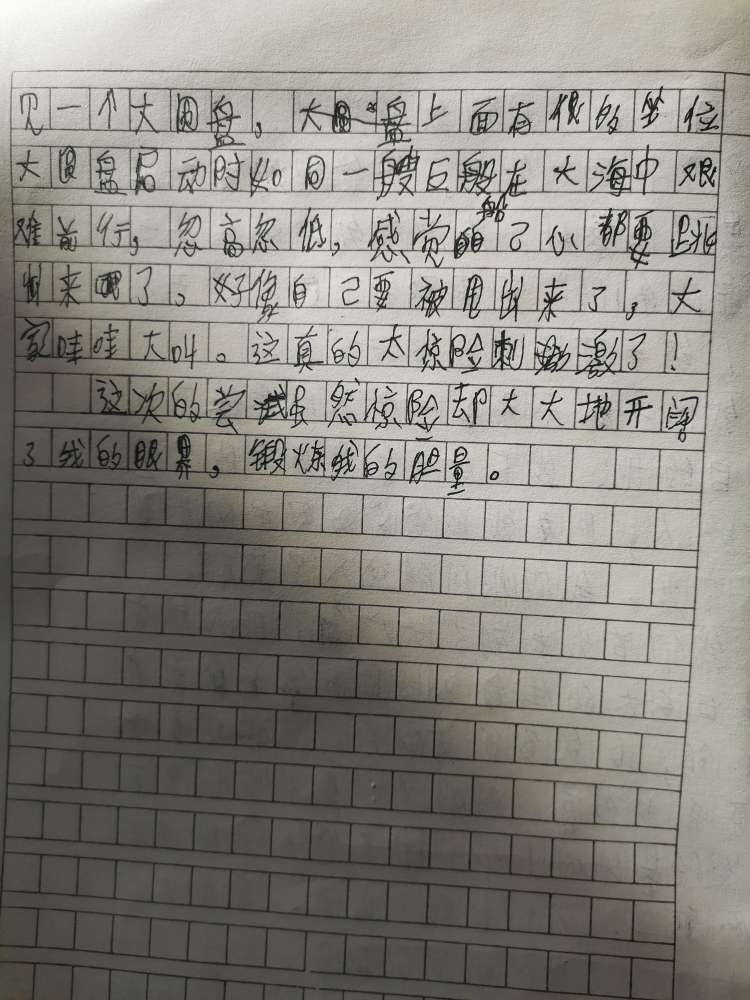 见一个大圆盘，大圆盘上面有很的坐位
大圆盘启动时如同一艘巨船在大海中艰
难前行，忽高忽低，感觉自己心都要跳
出来了。好像自己要被甩出来了，大
家哇哇大叫。这真的太惊险刺激了！
这次的尝试虽然惊险却大大地开阔
了我的眼界，锻炼我的胆量。